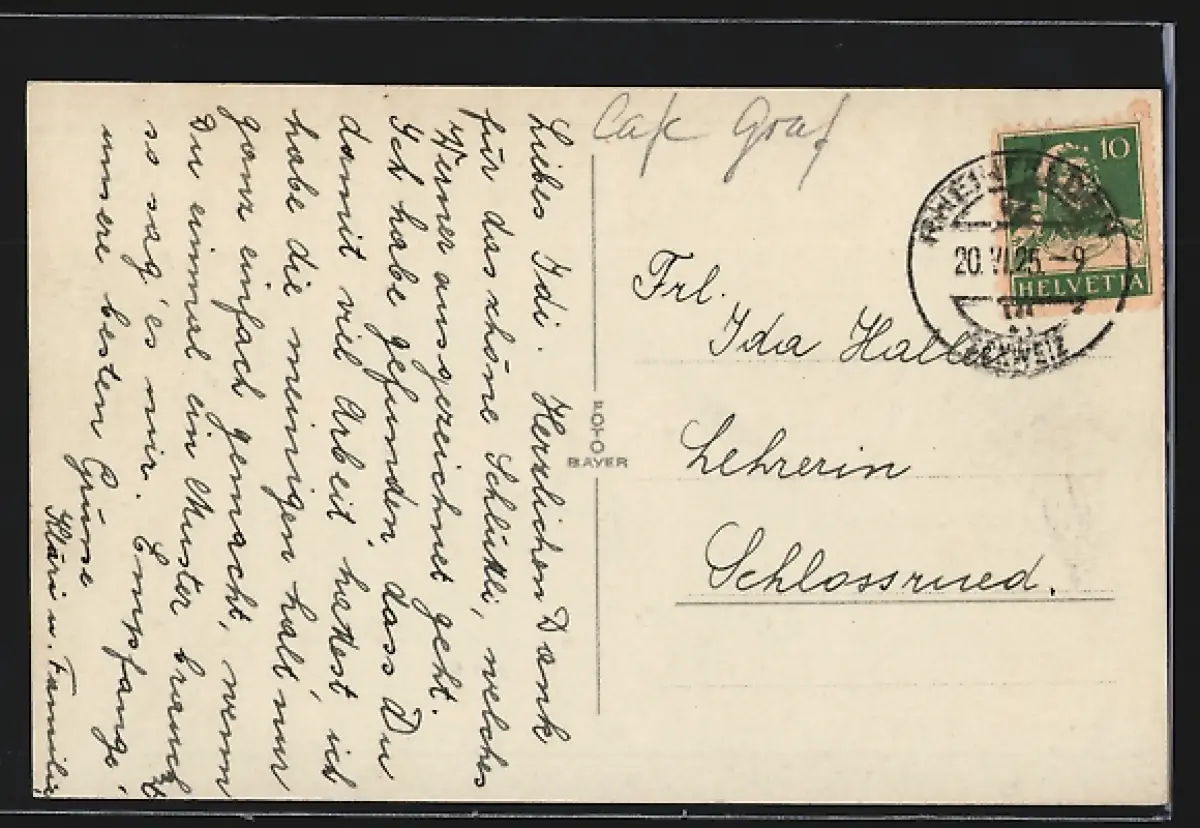 Liebes Idi. Herzlichen Dank
für das schöne Schlüttli, welches
Werner ausgezeichnet geht.
Ich habe gefunden, dass Du
damit viel Arbeit hattest, ich
habe die meinigen halt nur
ganz einfach gemacht, wenn
Du einmal ein Muster brauchst
so sag's mir. Empfange
unsere besten Grüsse
Kläri u. Familie
Cafe Graf
10
HELVETIA
20. VI. 25. - 9
(SCHWEIZ)
Frl.
Ida
Lehrerin
Schlossrued.
FOTO
BAYER